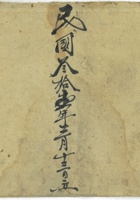 民國叁拾壹年十二月十三日立